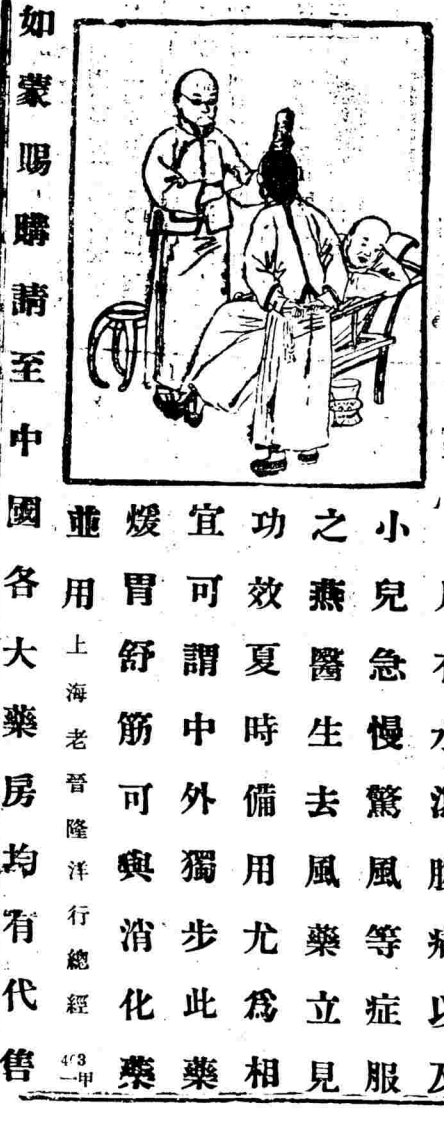 小兒急慢驚風等症服
之燕醫生去風藥立見
功效夏時備用尤為相
宜可謂中外獨步此藥
煖胃舒筋可與消化藥
並用上海老晉隆洋行總經
如蒙賜購請至中國各大藥房均有代售